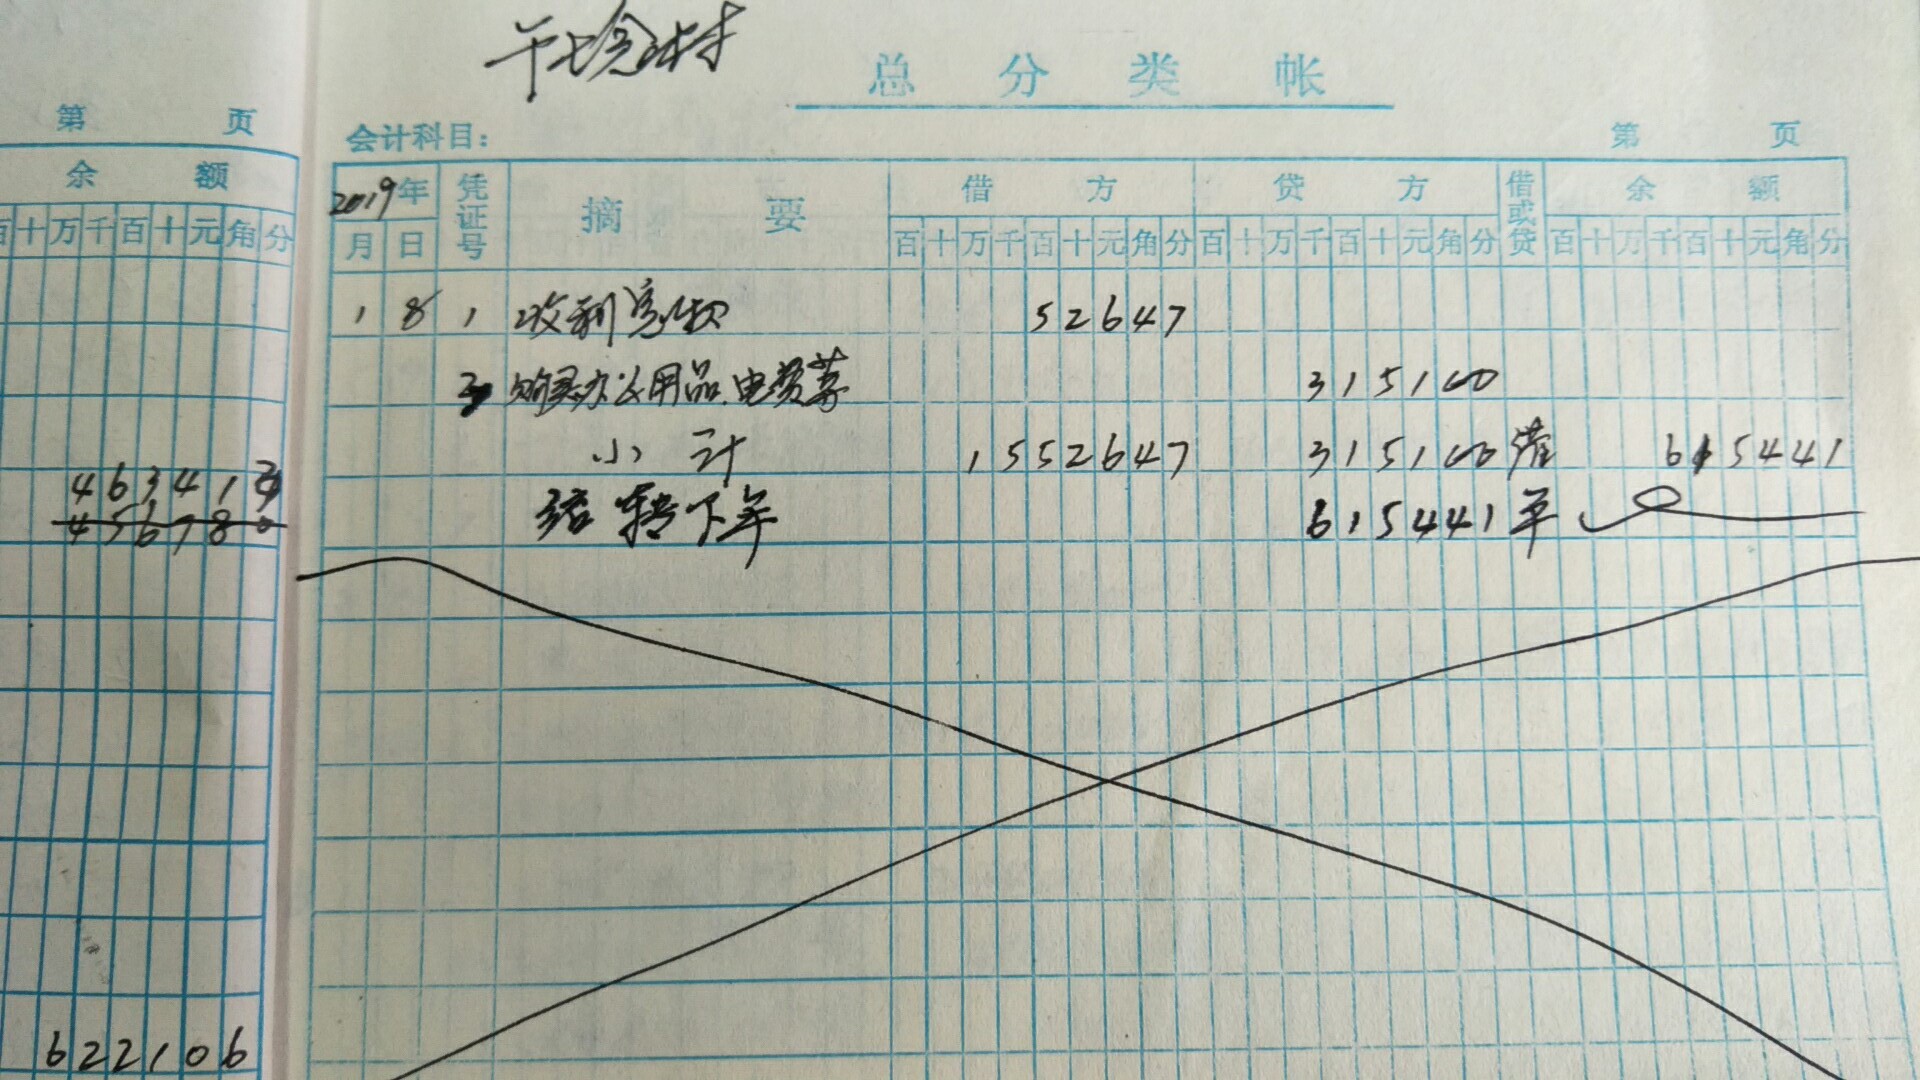 总分类帐
第 页
会计科目：
第 页
余 额
百十万千百十元角分
463412
456780
622106
2019年 凭证号 摘 要 借 方 贷 方 借或贷 余 额
月 日 百十万千百十元角分 百十万千百十元角分 百十万千百十元角分
1 8 1 收利息款 52647
3 购买办公用品、电费等 315100
小计 1552647 315100 借 615441
结转下年 615441 平